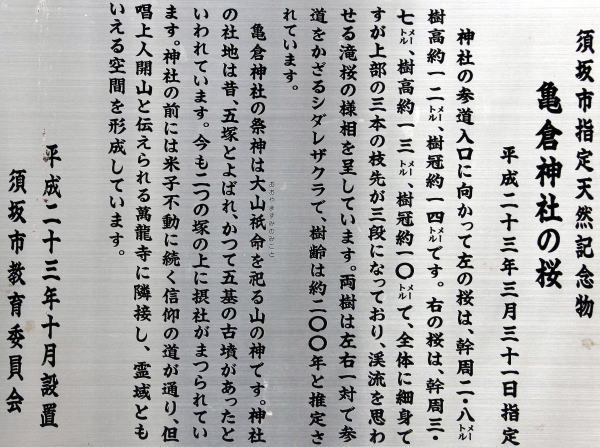 須坂市指定天然記念物
亀倉神社の桜
平成二十三年三月三十一日指定
神社の参道入口に向かって左の桜は、幹周二・八メートル
樹高約一二メートル、樹冠約一四メートルです。右の桜は、幹周三・
七メートル、樹高約一三メートル、樹冠約一〇メートルて、全体に細身で
すが上部の三本の枝先が三段になっており、渓流を思わ
せる滝桜の様相を呈しています。両樹は左右一対で参
道をかざるシダレザクラで、樹齢は約二〇〇年と推定さ
れています。
亀倉神社の祭神は大山祇命を祀る山の神です。神社
おおやますみのみこと
の社地は昔、五塚とよばれ、かつて五基の古墳があったと
いわれています。今も二つの塚の上に摂社がまつられてい
ます。神社の前には米子不動に続く信仰の道が通り、但
唱上人開山と伝えられる萬龍寺に隣接し、霊域とも
いえる空間を形成しています。
平成二十三年十月設置
須坂市教育委員会